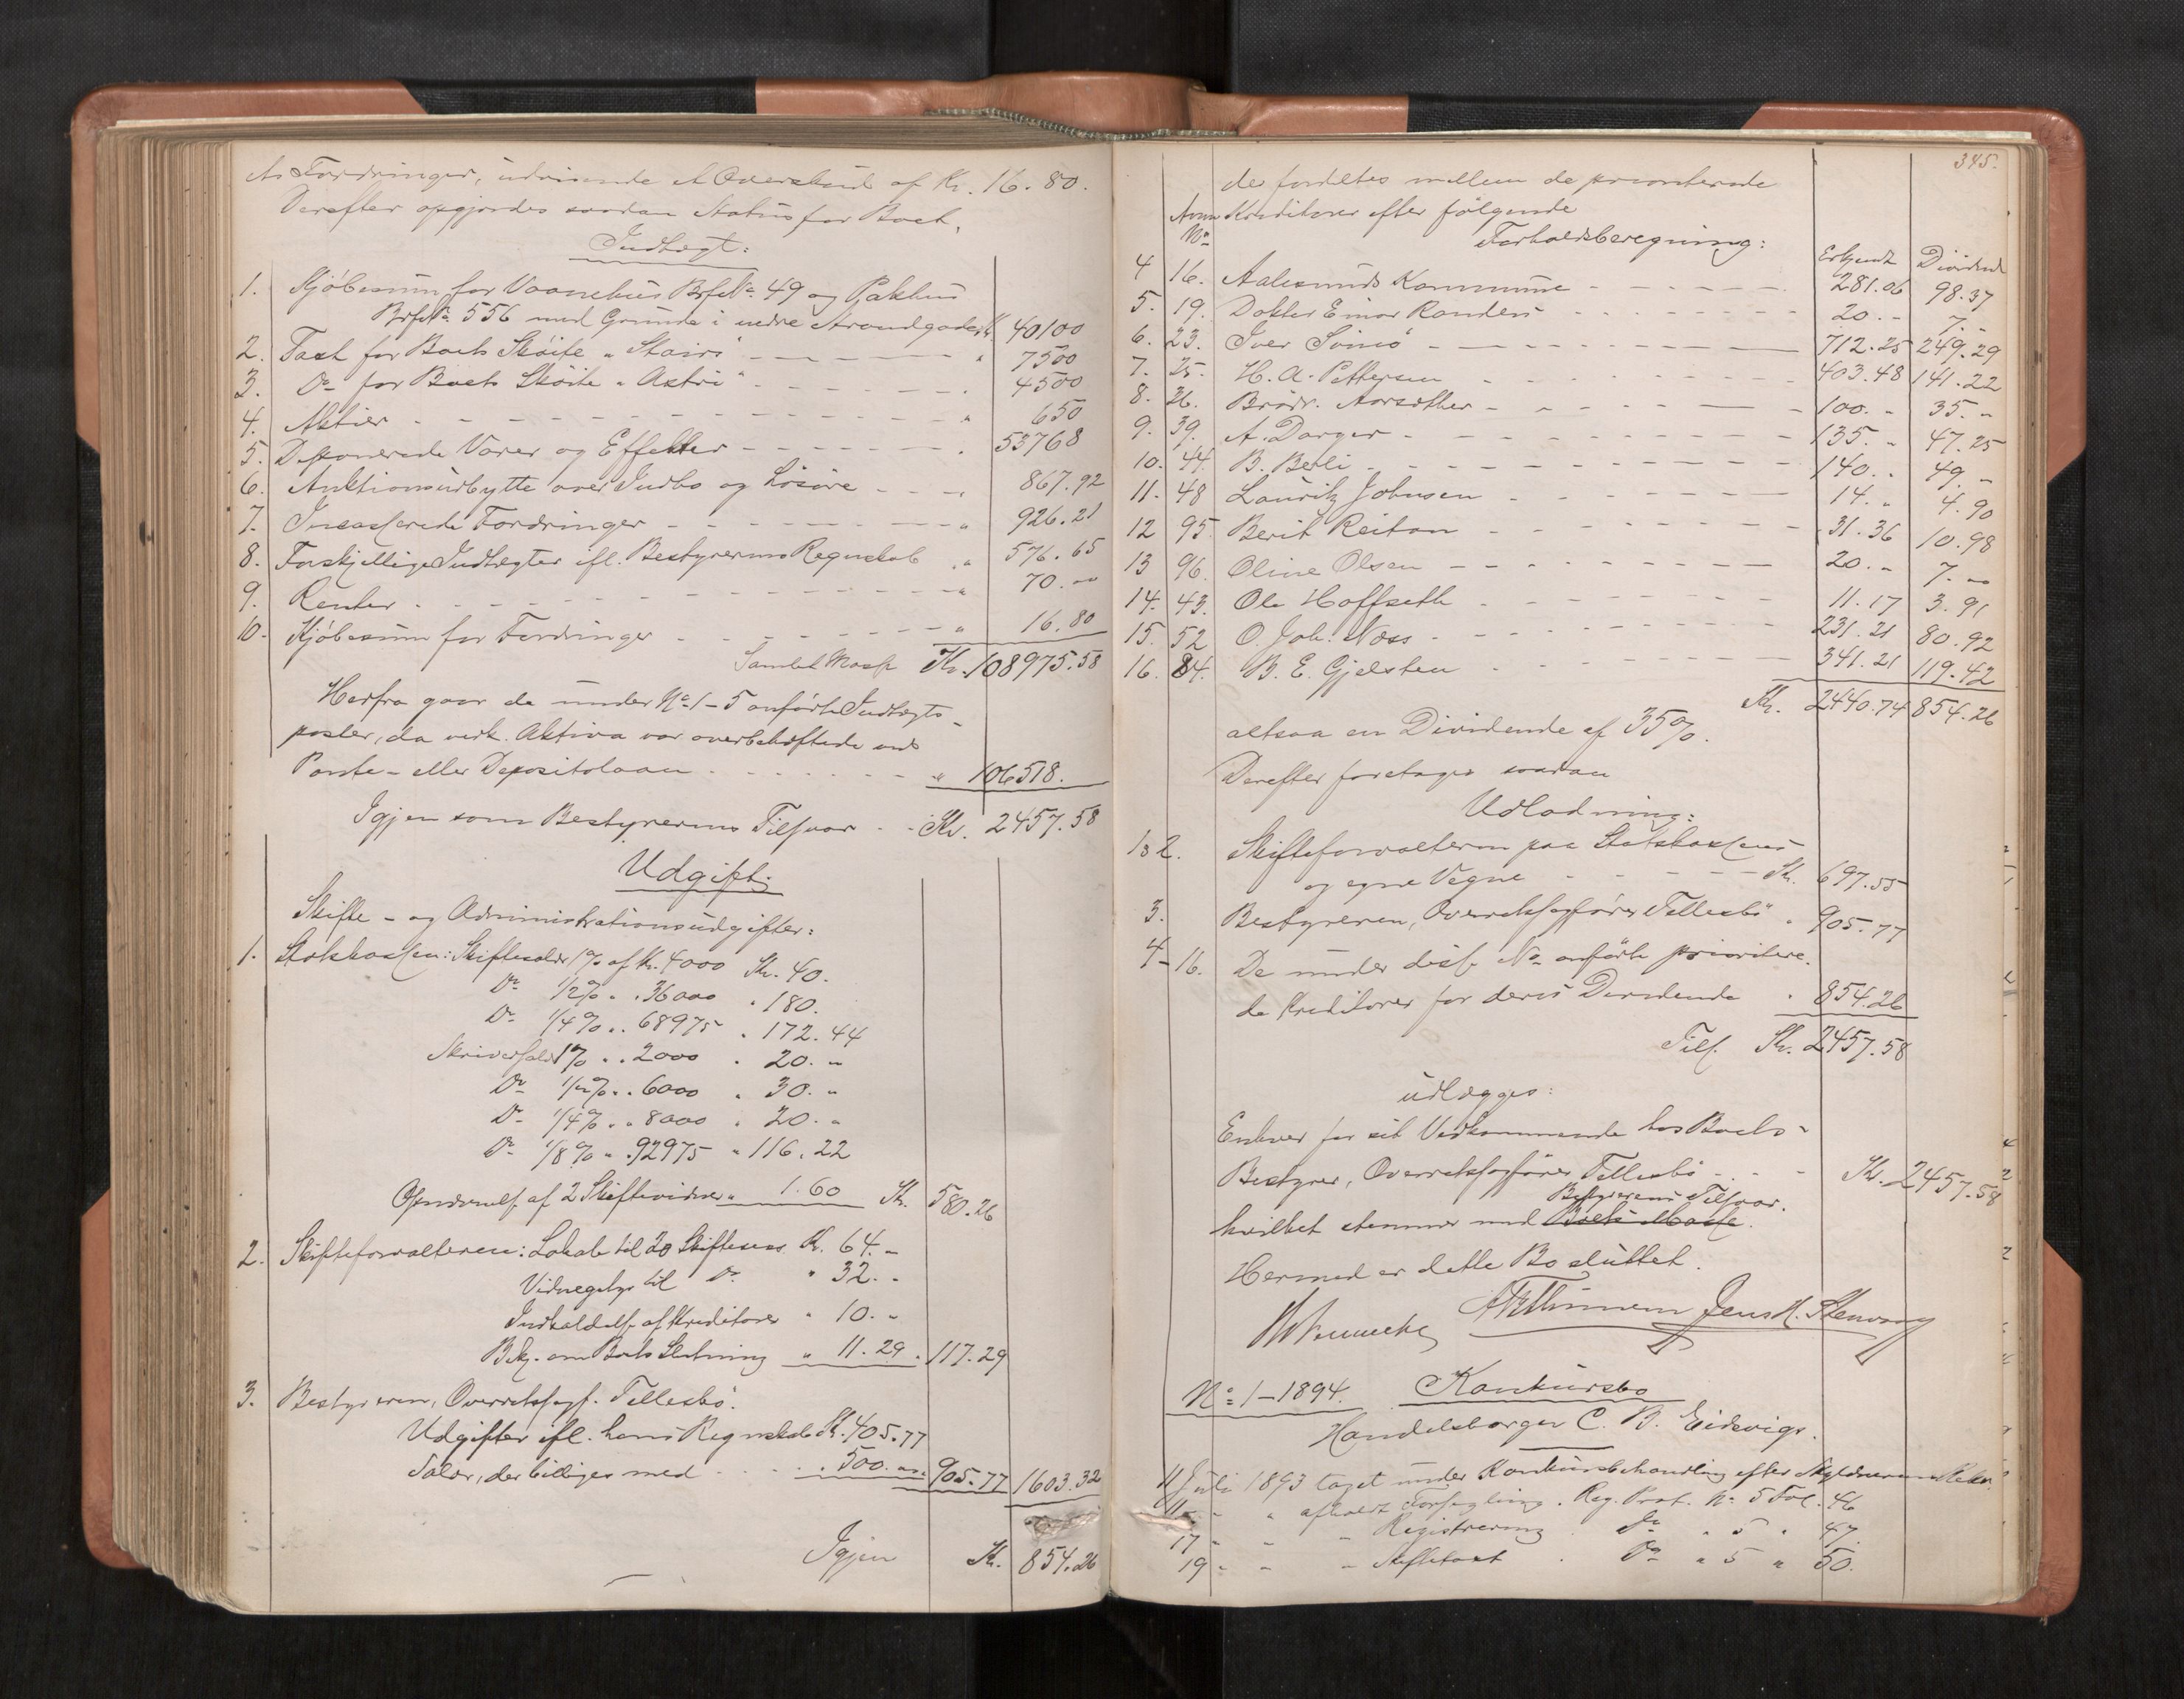 Fordringer, udvisende et Overskud af Kr. 16.80.
Derefter opgjordes saadan Status for Boet.
Indtægt:
1. Kjöbesum for Vaanehus Brfn. 49 og Pakhus
Brfn. 556 med Grunde i nedre Strandgade Kr. 40100
2. Taxt for Boets Sköite "Stairs" - - - " 7500
3. Do for Boets Sköite "Astri" - - - " 4500
4. Aktier - - - " 650
5. Deponerede Varer og Effekter - - - " 53768
6. Auktionsudbytte over Indbo og Lösöre - - - " 867.92
7. Incasserede Fordringer - - - " 926.21
8. Forskjellige Indtægter ifl. Bestyrerens Regnskab " 576.65
9. Renter - - - " 70.00
10. Kjöbesum for Fordringer - - - " 16.80
Samlet Masse Kr. 108975.58
Herfra gaar de under No 1-5 anförte Indtægts-
poster, da vedk. Aktiva var overbehæftede ved
Pante- eller Depositolaan - - - " 106518.
Igjen som Bestyrerens Tilsvar - - Kr. 2457.58
Udgift:
Skifte- og Administrationsudgifter:
1. Statskassen: Skiftesalær 1% af Kr. 4000 Kr. 40.
Do 1/2% " " 36000 " 180.
Do 1/4% " " 68975 " 172.44
Skriversalær 1% " " 2000 " 20. "
Do 1/2% " " 6000 " 30. "
Do 1/4% " " 8000 " 20. "
Do 1/8% " " 92975 " 116.22
Opnævnelse af 2 Skiftevidner " 1.60 Kr. 580.26
2. Skifteforvalteren: Lokale til 20 Skiftesess. Kr. 64. "
Vidnegebyr til Do " 32. "
Indkaldelse af Kreditorer " 10. "
Bekj. om Boets Slutning " 11.29 " 117.29
3. Bestyreren, Overretssagf. Tellesbö.
Udgifter ifl. hans Regnskab Kr. 405.77
Salær, der billiges med - - - " 500. " " 905.77 1603.32
Igjen Kr. 854.26
345.
der fordeles mellem de prioriterede
Anm. No Kreditorer efter fölgende
Forholdsberegning:
Erkjendt Dividende
4 16. Aalesunds Kommune - - - 281.06 98.37
5. 19. Doktor Einar Randers - - - 20. " 7. "
6. 23. Iver Svinö - - - 712.25 249.29
7. 25. H. A. Pettersen - - - 403.48 141.22
8. 26. Brödr. Aarsæther - - - 100. " 35. "
9. 39. A. Dorger - - - 135. " 47.25
10. 44. B. Berli - - - 140. " 49. "
11. 48 Lauritz Johnsen - - - 14. " 4.90
12 95. Berit Reitan - - - 31.36 10.98
13 96. Oline Olsen - - - 20. " 7. "
14. 43. Ole Hoffseth - - - 11.17 3.91
15. 52 O. Joh. Næss - - - 231.21 80.92
16. 84. B. E. Gjelsten - - - 341.21 119.42
Kr. 2440.74 854.26
altsaa en Dividende af 35%.
Derefter foretages saadan
Udlodning:
1 o 2. Skifteforvalteren paa Statskassens
og egne Vegne - - - Kr. 697.55
3. Bestyreren, Overretssagförer Tellesbö " 905.77
4-16. De under disse No anförte prioritere-
de Kreditorer for deres Dividende " 854.26
Tils. Kr. 2457.58
udlægges:
Enhver for sit Vedkommende hos Boets-
Bestyrer, Overretssagförer Tellesbö - - - Kr. 2457.58
Bestyrerens Tilsvar.
hvilket stemmer med Boets Masse.
Hermed er dette Bo sluttet.
Jens H. Stenvaag
No 1-1894. Konkursbo
Handelsborger C. B. Eidsvigs.
11 Juli 1893 taget under Konkursbehandling efter Skyldnerens
11 - " afholdt Forsegling. Reg. Prot. No 5 Fol. 46
17 - - - Registrering. Do " 5 " 47.
19 - - - Skiftetaxt. Do " 5 " 50.